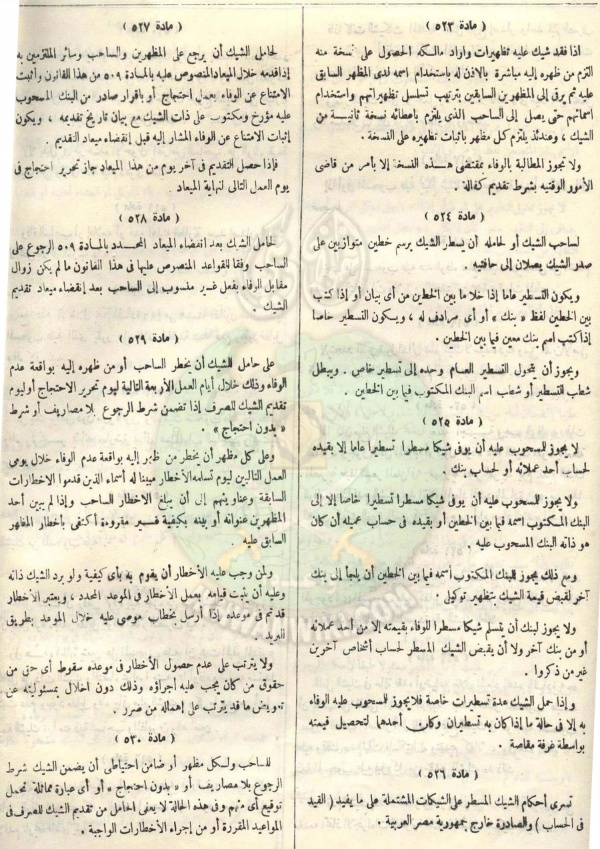 ( مادة ٥٢٣ )
اذا فقد شيك عليه تظهيرات واراد مالكه الحصول على نسخة منه
التزم من ظهره إليه مباشرة بالاذن له باستخدام اسمه لدى المظهر السابق
عليه ثم يرقى إلى المظهرين السابقين بترتيب تسلسل تظهيراتهم واستخدام
اسمائهم حتى يصل إلى الساحب الذى يلتزم باعطائه نسخة ثانيـة من
الشيك ، وعندئذ يلتزم كل مظهر باثبات تظهيره على النسخة .
ولا تجوز المطالبة بالوفاء بمقتضى هـذه النسخة إلا بأمر من قاضى
الأمور الوقتيه بشرط تقديم كفالة .
( مادة ٥٢٤ )
لصاحب الشيك أو لحامله أن يسطر الشيك برسم خطين متوازيين على
صدر الشيك يصلان إلى حافتيه .
ويكون التسطير عاما إذا خلا ما بين الخطين من أى بيان أو إذا كتب
بين الخطين لفظ « بنك » أو أى مرادف له ، ويكون التسطير خاصا
إذا كتب اسم بنك معين فيما بين الخطين .
ويجوز أن يتحول التسطير العـام وحده إلى تسطير خاص . ويبطل
شطب التسطير أو شطب اسم البنك المكتوب فيما بين الخطين .
( مادة ٥٢٥ )
لا يجوز للمسحوب عليه أن يوفى شيكا مسطرا تسطيرا عاما إلا بقيده
لحساب أحد عملائه أو لحساب بنك .
ولا يجوز للمسحوب عليه أن يوفى شيكا مسطرا تسطيرا خاصا إلا إلى
البنك المكتوب اسمه فيما بين الخطين أو بقيده فى حساب عميله أن كان
هو ذاته البنك المسحوب عليه .
ومع ذلك يجوز للبنك المكتوب أسمه فيما بين الخطين أن يلجأ إلى بنك
آخر لقبض قيمة الشيك بتظهير توكيلى .
ولا يجوز لبنك أن يتسلم شيكا مسطرا للوفاء بقيمته إلا من أحد عملائه
أو من بنك آخر ولا أن يقبض الشيك المسطر لحساب أشخاص آخرين
غير من ذكروا .
وإذا حمل الشيك عدة تسطيرات خاصة فلا يجوز للمسحوب عليه الوفاء
به إلا فى حالة ما إذا كان به تسطيران وكان أحدهما لتحصيل قيمته
بواسطة غرفة مقاصة .
( مادة ٥٢٦ )
تسرى أحكام الشيك المسطر على الشيكات المشتملة على ما يفيد ( القيد
فى الحساب ) والصادرة خارج جمهورية مصر العربية .
( مادة ٥٢٧ )
لحامل الشيك أن يرجع على المظهرين والساحب وسائر الملتزمين به
إذا قدمه خلال الميعاد المنصوص عليه بالمـادة ٥٠٩ من هذا القانون وأثبت
الامتناع عن الوفاء بعمل احتجاج أو باقرار صادر من البنك المسحوب
عليه مؤرخ ومكتوب على ذات الشيك مع بيان تاريخ تقديمه ، ويكون
إثبات الامتناع عن الوفاء المشار إليه قبل إنقضاء ميعاد التقديم .
فإذا حصل التقديم فى آخر يوم من هذا الميعاد جاز تحرير احتجاج فى
يوم العمل التالى لنهاية الميعاد .
( مادة ٥٢٨ )
لحامل الشيك بعد انقضاء الميعاد المحـدد بالمـادة ٥٠٩ الرجوع على
الساحب وفقا للقواعد المنصوص عليها فى هذا القانون ما لم يكن زوال
مقابل الوفاء بفعل غـير منسوب إلى الساحب بعد إنقضاء ميعاد تقديم
الشيك .
( مادة ٥٢٩ )
على حامل الشيك أن يخطر الساحب أو من ظهره إليه بواقعة عدم
الوفاء وذلك خلال أيام العمل الأربعة التالية ليوم تحرير الاحتجاج أو ليوم
تقديم الشيك للصرف إذا تضمن شرط الرجوع بلا مصاريف أو شرط
« بدون احتجاج » .
وعلى كل مظهر أن يخطر من ظهر إليه بواقعة عدم الوفاء خلال يومى
العمل التاليين ليوم تسلمه الأخطار مبينا له أسماء الذين قدموا الاخطارات
السابقة وعناوينهم إلى أن يبلغ الاخطار الساحب وإذا لم يبين أحد
المظهرين عنوانه أو بينه بكيفية غـير مقروءة أكتفى بأخطار المظهر
السابق عليه .
ولمن وجب عليه الأخطار أن يقوم به بأى كيفية ولو برد الشيك ذاته
وعليه أن يثبت قيامه بعمل الأخطار فى الموعد المحدد ، ويعتبر الأخطار
قد تم فى موعده إذا أرسل بخطاب موصى عليه خلال الموعد بطريق
البريد .
ولا يترتب على عدم حصول الأخطار فى موعده سقوط أى حق من
حقوق من كان يجب عليه أجراؤه وذلك دون اخلال بمسئوليته عن
تعويض ما قد يترتب على إهماله من ضرر .
( مادة ٥٣٠ )
للساحب ولـكل مظهر أو ضامن احتياطى أن يضمن الشيك شرط
الرجوع بلا مصاريف أو « بدون احتجاج » أو أى عبارة مماثلة تحمل
توقيع أى منهم وفى هذه الحالة لا يعفى الحامل من تقديم الشيك للصرف فى
المواعيد المقررة أو من إجراء الأخطارات الواجبة .